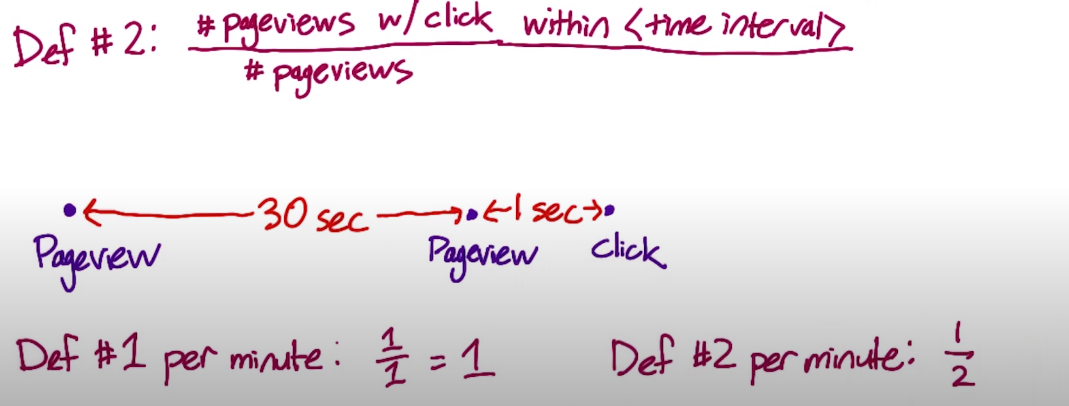 Def #2: #pageviews w/click within <time interval>
# pageviews
30 sec 1 sec
Pageview Pageview Click
Def #1 per minute: 1/1 = 1 Def #2 per minute: 1/2